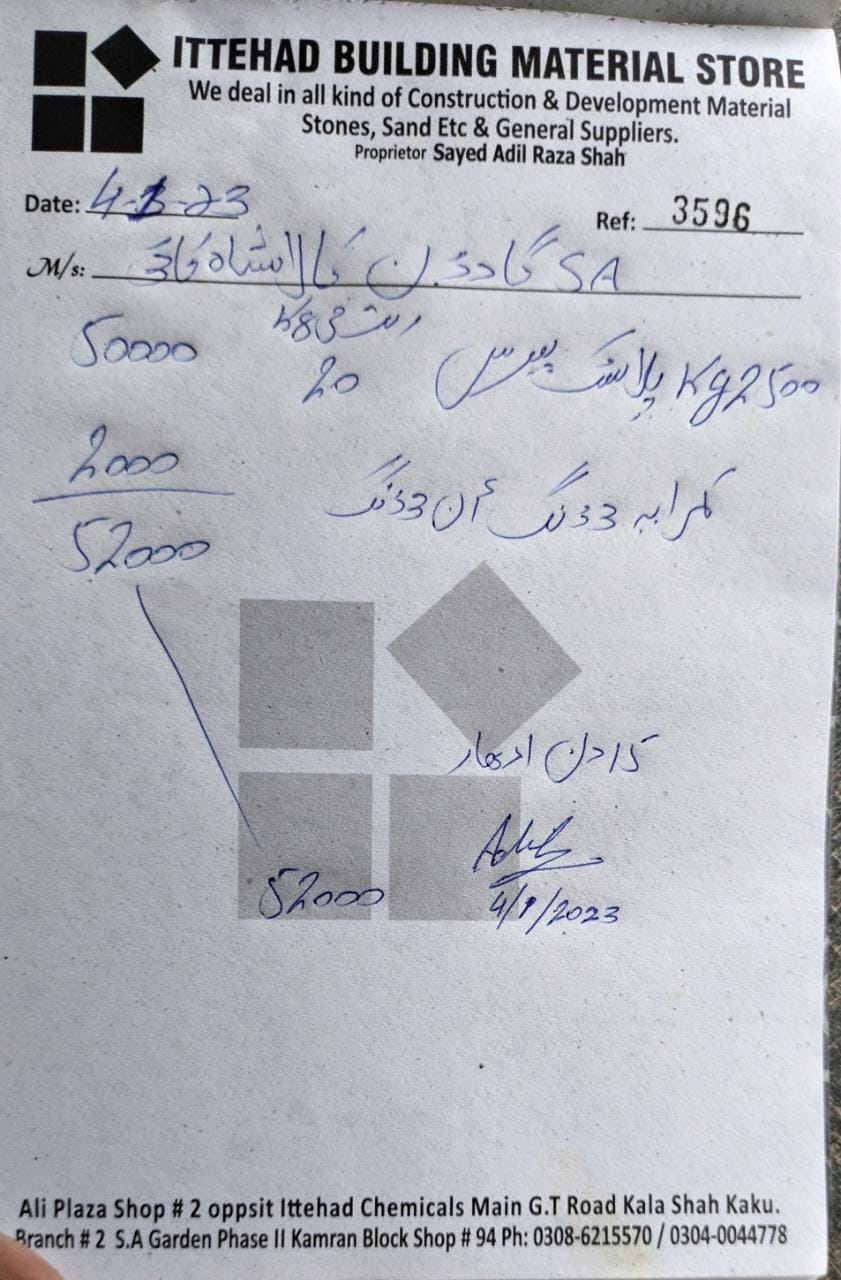 ITTEHAD BUILDING MATERIAL STORE
We deal in all kind of Construction & Development Material
Stones, Sand Etc & General Suppliers.
Proprietor Sayed Adil Raza Shah
Date: 4-1-23
Ref: 3596
M/s: SA گارڈن کالا شاہ کاکو
ریٹ فی Kg
2500 Kg پلاسٹر پیرس 20 50000
کرایہ لوڈنگ ان لوڈنگ 2000
52000
15 دن ادھار
4/1/2023
52000
Ali Plaza Shop # 2 oppsit Ittehad Chemicals Main G.T Road Kala Shah Kaku.
Branch # 2 S.A Garden Phase II Kamran Block Shop # 94 Ph: 0308-6215570 / 0304-0044778